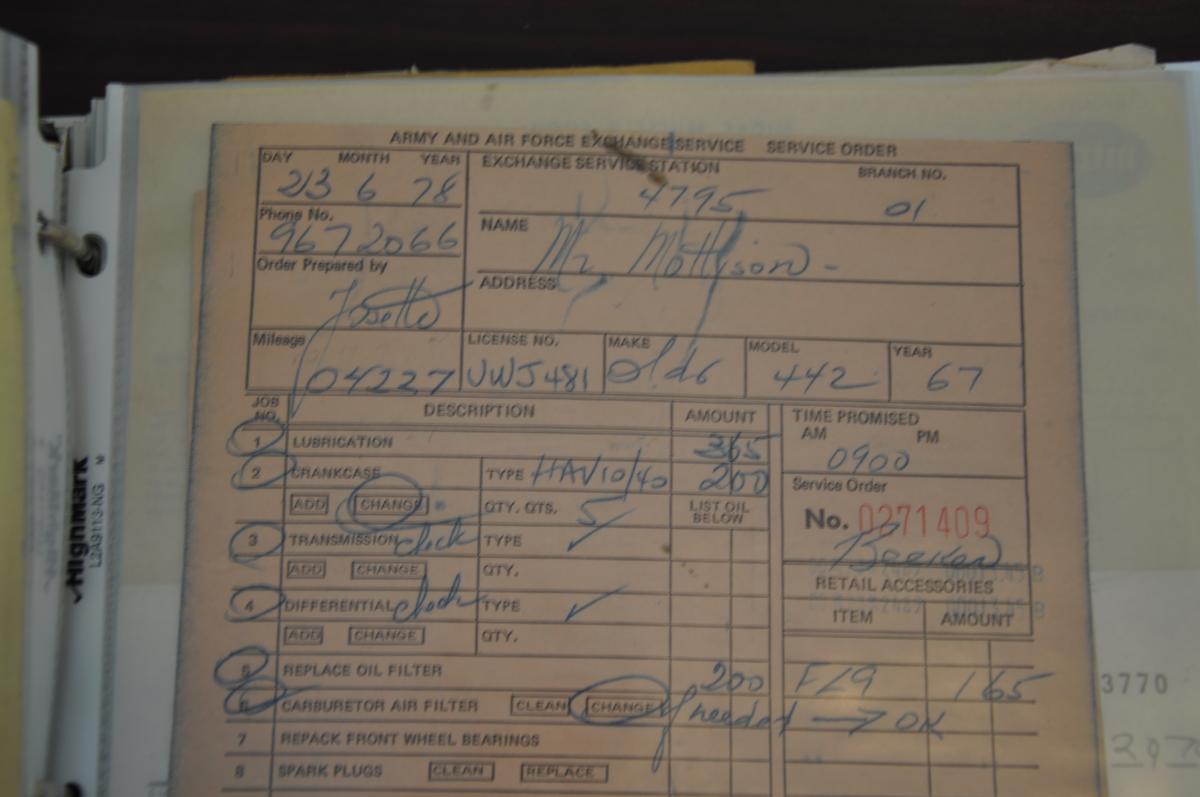 ARMY AND AIR FORCE EXCHANGE SERVICE SERVICE ORDER
DAY MONTH YEAR
23 6 78
EXCHANGE SERVICE STATION
4795
BRANCH NO.
01
Phone No.
9672066
NAME
Mr. Mattison -
Order Prepared by
Josette
ADDRESS
Mileage
04227
LICENSE NO.
UWJ481
MAKE
Olds
MODEL
442
YEAR
67
JOB NO. DESCRIPTION AMOUNT
1 LUBRICATION 365
2 CRANKCASE TYPE HAV10/40 200
ADD CHANGE QTY. QTS. 5 LIST OIL BELOW
3 TRANSMISSION check TYPE ✓
ADD CHANGE QTY.
4 DIFFERENTIAL check TYPE ✓
ADD CHANGE QTY.
5 REPLACE OIL FILTER 200
6 CARBURETOR AIR FILTER CLEAN CHANGE if needed → OK
7 REPACK FRONT WHEEL BEARINGS
8 SPARK PLUGS CLEAN REPLACE
TIME PROMISED
AM PM
0900
Service Order
No. 0271409
RETAIL ACCESSORIES
ITEM AMOUNT
FL9 165
Highmark
L2A9113-NG M
3770